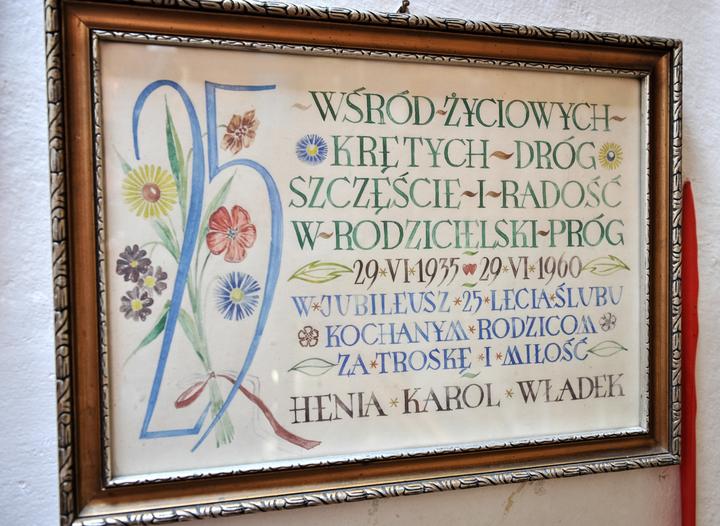 25
~WŚRÓD~ŻYCIOWYCH~
KRĘTYCH~DRÓG
SZCZĘŚCIE~I~RADOŚĆ
W~RODZICIELSKI~PRÓG
29*VI*1935 ♥ 29*VI*1960
W*JUBILEUSZ*25*LECIA*ŚLUBU
KOCHANYM*RODZICOM
ZA*TROSKĘ*I*MIŁOŚĆ
HENIA*KAROL*WŁADEK